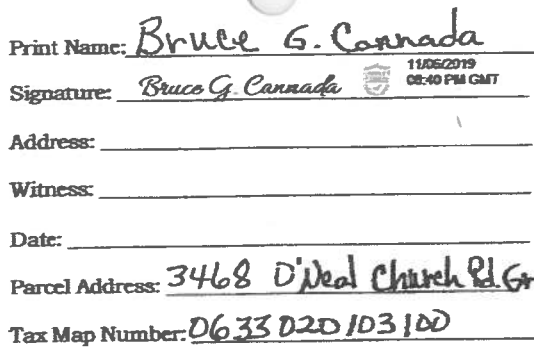 Print Name: Bruce G. Cannada
Signature: Bruce G. Cannada 11/06/2019
08:40 PM GMT
Address:
Witness:
Date:
Parcel Address: 3468 O'Neal Church Rd. Gr
Tax Map Number: 0633020103100